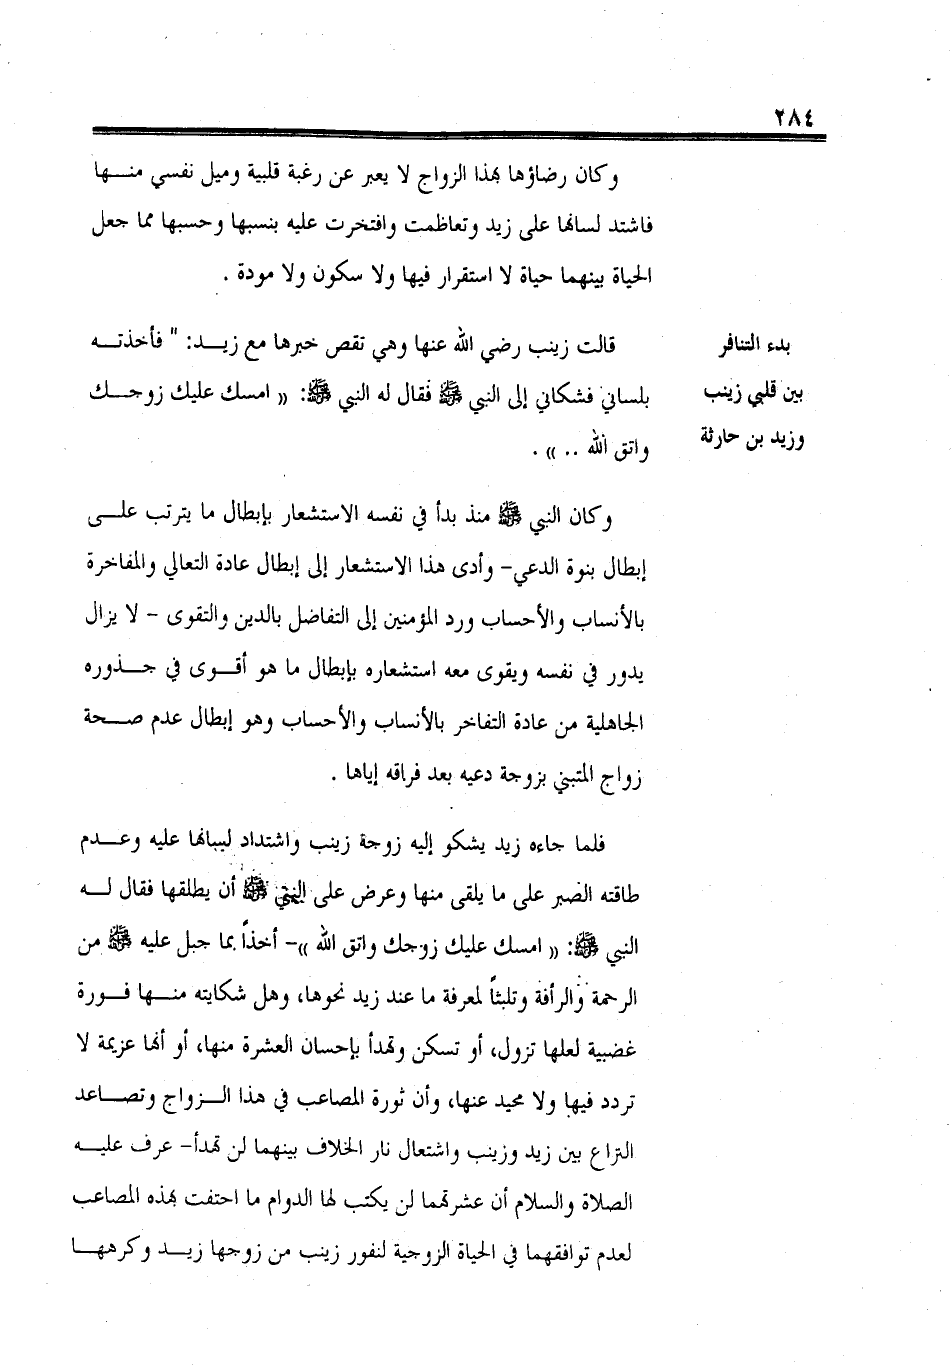 ٢٨٤
وكان رضاؤها بهذا الزواج لا يعبر عن رغبة قلبية وميل نفسي منـــها
فاشتد لسانها على زيد وتعاظمت وافتخرت عليه بنسبها وحسبها مما جعل
الحياة بينهما حياة لا استقرار فيها ولا سكون ولا مودة .
بدء التنافر
بين قلبي زينب
وزيد بن حارثة
قالت زينب رضي الله عنها وهي تقص خبرها مع زيــد: " فأخذتــه
بلساني فشكاني إلى النبي ﷺ فقال له النبي ﷺ: « امسك عليك زوجــك
واتق الله .. » .
وكان النبي ﷺ منذ بدأ في نفسه الاستشعار بإبطال ما يترتب علــى
إبطال بنوة الدعي- وأدى هذا الاستشعار إلى إبطال عادة التعالي والمفاخرة
بالأنساب والأحساب ورد المؤمنين إلى التفاضل بالدين والتقوى - لا يزال
يدور في نفسه ويقوى معه استشعاره بإبطال ما هو أقــوى في جــذوره
الجاهلية من عادة التفاخر بالأنساب والأحساب وهو إبطال عدم صــحة
زواج المتبني بزوجة دعيه بعد فراقه إياها .
فلما جاءه زيد يشكو إليه زوجة زينب واشتداد لسانها عليه وعــدم
طاقته الصبر على ما يلقى منها وعرض على النبي ﷺ أن يطلقها فقال لــه
النبي ﷺ: « امسك عليك زوجك واتق الله »- أخذاً بما جبل عليه ﷺ من
الرحمة والرأفة وتلبثاً لمعرفة ما عند زيد نحوها، وهل شكايته منـــها فــورة
غضبية لعلها تزول، أو تسكن وتهدأ بإحسان العشرة منها، أو أنها عزيمة لا
تردد فيها ولا محيد عنها، وأن ثورة المصاعب في هذا الــزواج وتصــاعد
النزاع بين زيد وزينب واشتعال نار الخلاف بينهما لن تهدأ- عرف عليــه
الصلاة والسلام أن عشرتهما لن يكتب لها الدوام ما احتفت بهذه المصاعب
لعدم توافقهما في الحياة الزوجية لنفور زينب من زوجها زيــد وكرههــا